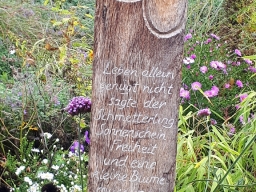 Leben allein
genügt nicht
sagte der
Schmetterling
Sonnenschein
Freiheit
und eine
kleine Blume
muss